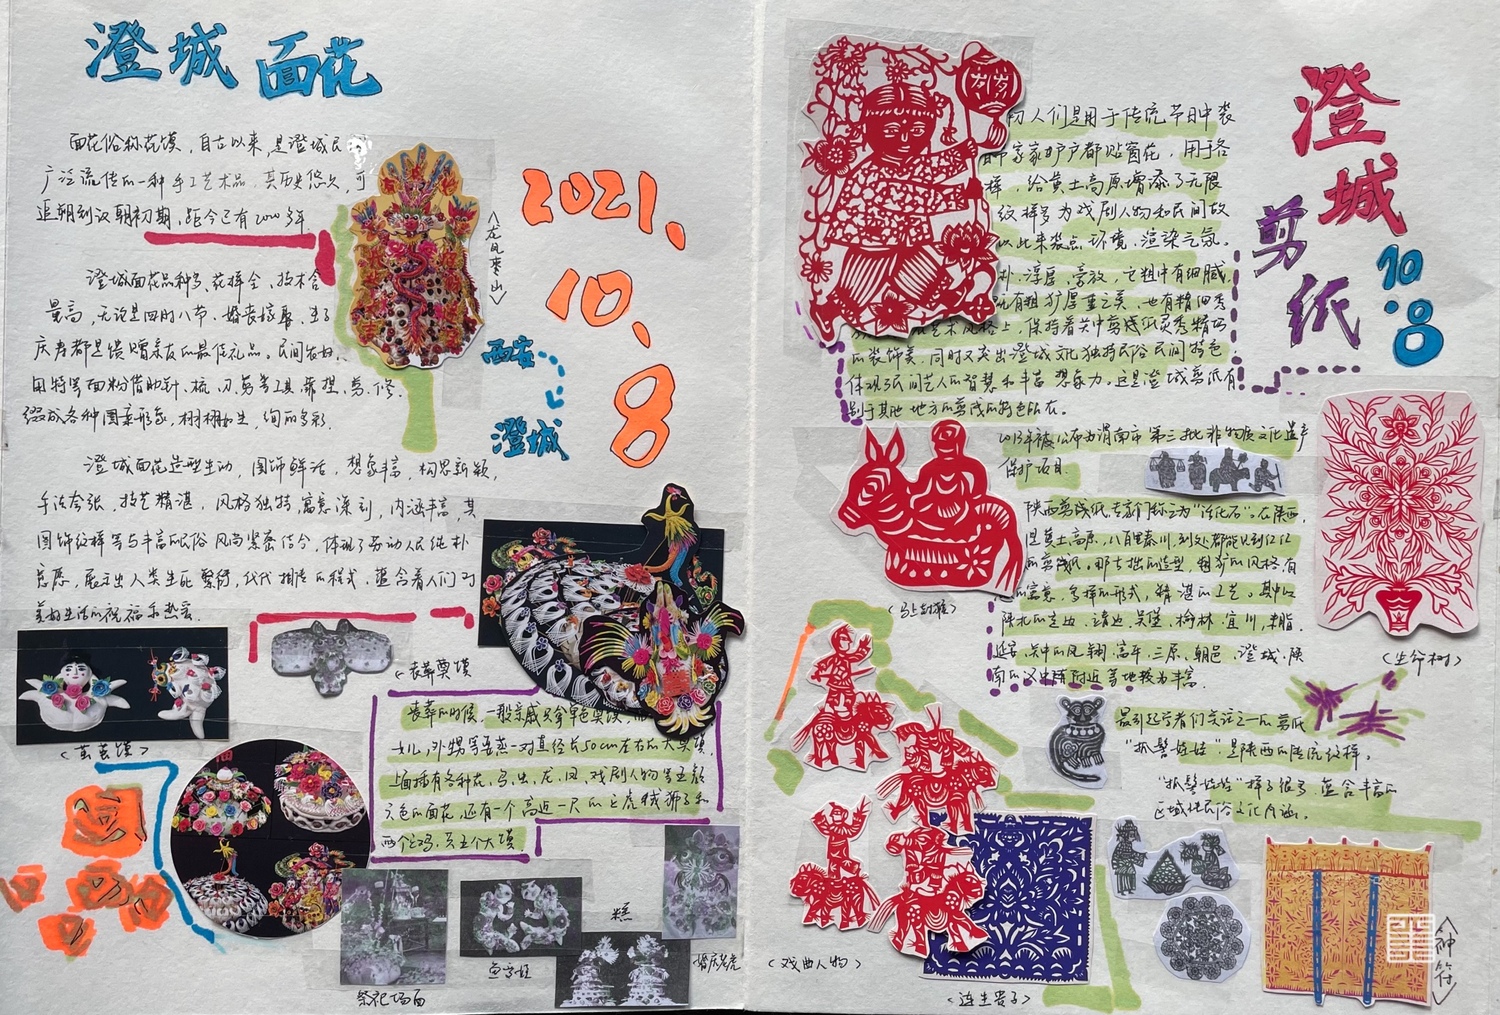 澄城 面花
面花俗称花馍，自古以来，是澄城民
广泛流传的一种手工艺术品，其历史悠久，可
追朔到汉朝初期，距今已有2000多年
澄城面花品种多、花样全、技术含
量高，无论是四时八节、婚丧嫁娶、生了
庆寿都是馈赠亲友的最佳礼品。民间
用特等面粉借助针、梳、刀、剪等工具，靠捏、剪、修
缀成各种图案形象，栩栩如生，绚丽多彩．
澄城面花造型生动，图饰鲜活，想象丰富，构思新颖，
手法夸张，技艺精湛，风格独特，寓意深刻，内涵丰富，其
图饰纹样等与丰富的民俗风尚紧密结合，体现了劳动人民纯朴
意愿，展示出人类生死繁衍，代代相传的程式，蕴含着人们对
美好生活的祝福和热爱．
<龙凤枣山>
2021.
10.
8
西安
澄城
<丧葬奠馍
丧葬的时候，一般亲戚只拿单色奠馍，而
女儿，外甥等要蒸一对直径长50cm左右的大奠馍
上面插有各种花、鸟、虫、龙、凤、戏剧人物等五颜
六色的面花，还有一个高近一尺的老虎或狮子和
两个
<茧茧馍>
祭祀场面
鱼变娃
糕
婚庆老虎
澄城
剪纸
10.8
人们是用于传统节日中装
家家户户都贴窗花，用于各
样，给黄土高原增添了无限
纹样多为戏剧人物和民间故
以此来装点环境，渲染气氛。
朴、淳厚、豪放，它粗中有细腻，
有粗犷厚重之美，也有精细秀
艺术风格上，保持着关中剪纸灵秀精巧
的装饰美，同时又突出澄城文化独特民俗民间特色
体现了民间艺人的智慧和丰富想象力，这是澄城剪纸有
别于其他地方的剪纸的特色所在。
2013年被公布为渭南市第三批非物质文化遗产
保护项目．
陕西剪纸纸，专家们称之为“活化石”。在陕西，
黄土高原，八百里秦川，到处都能见到红红
的剪纸．那古拙的造型，粗犷的风格，有
的寓意，多样的形式，精湛的工艺。其中以
陕北的定边，靖边，吴堡，榆林，宜川，米脂，
延安，关中的凤翔，富平，三原，朝邑，澄城，陕
南的汉中等附近等地较为丰富．
最引起学者们关注之一的剪纸
“抓髻娃娃”是陕西的传统纹样．
“抓髻娃娃”样子很多，蕴含丰富的
区域性民俗文化内涵．
<马上封猴>
<生命树>
<戏曲人物>
<连生贵子>
<神符>